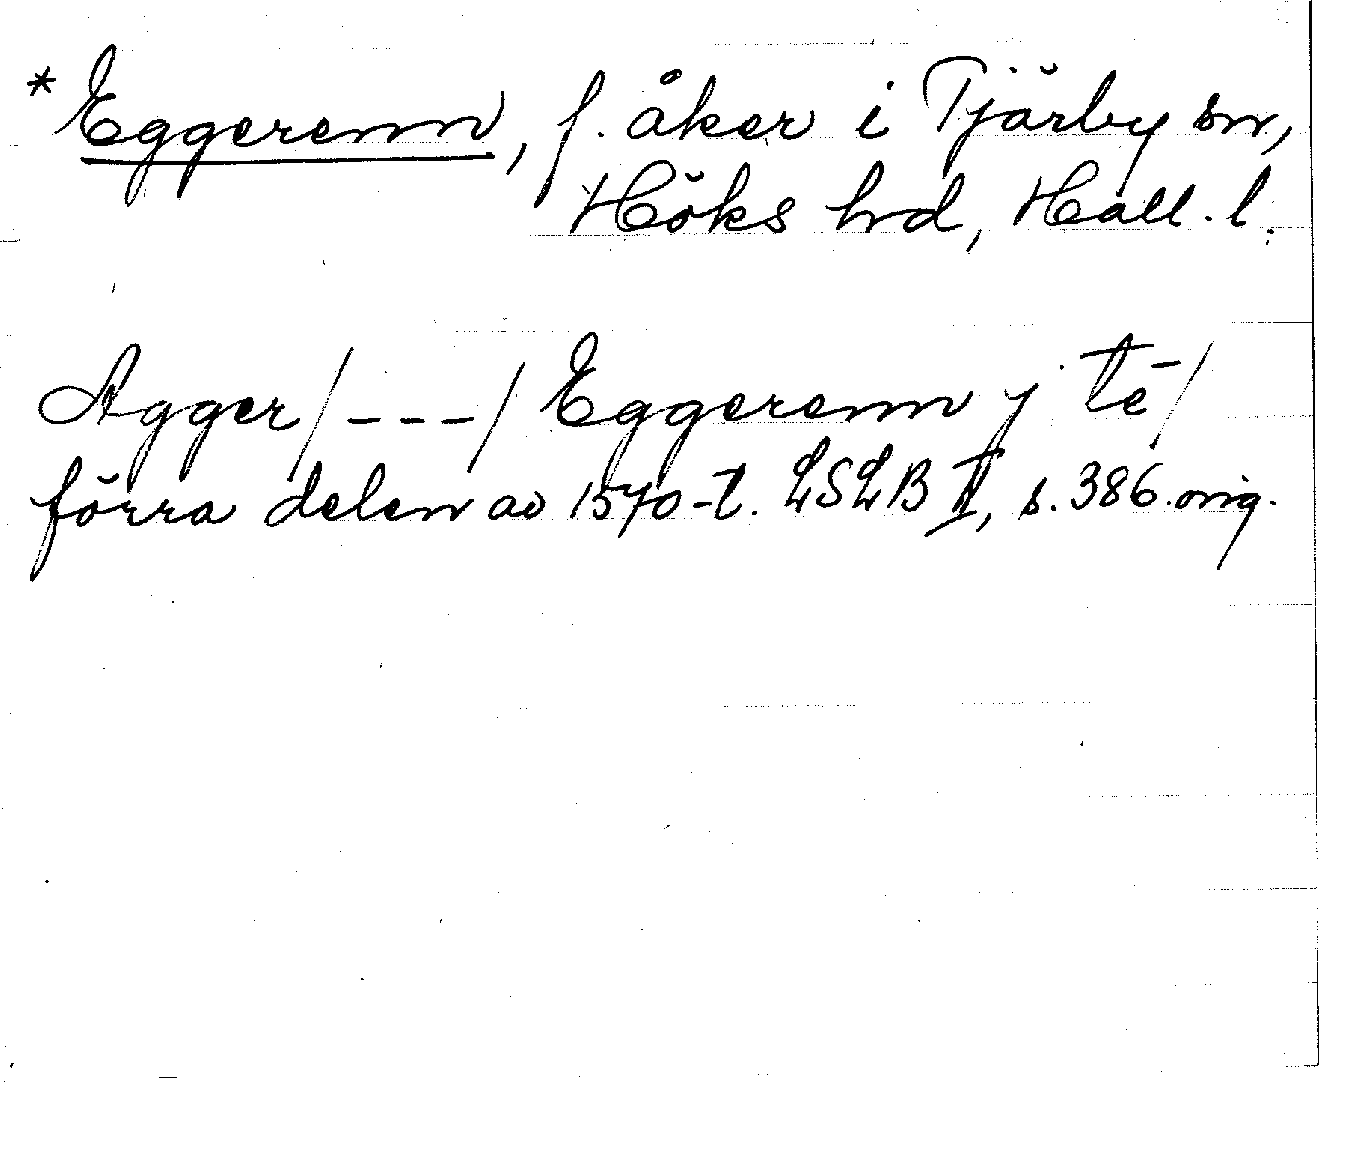 *Eggerenn, f. åker i Tjärby sn,
Höks hrd, Hall. l.
Agger/---/ Eggerenn j té/
förra delen av 1570-t. LSLB II, s. 386. orig.